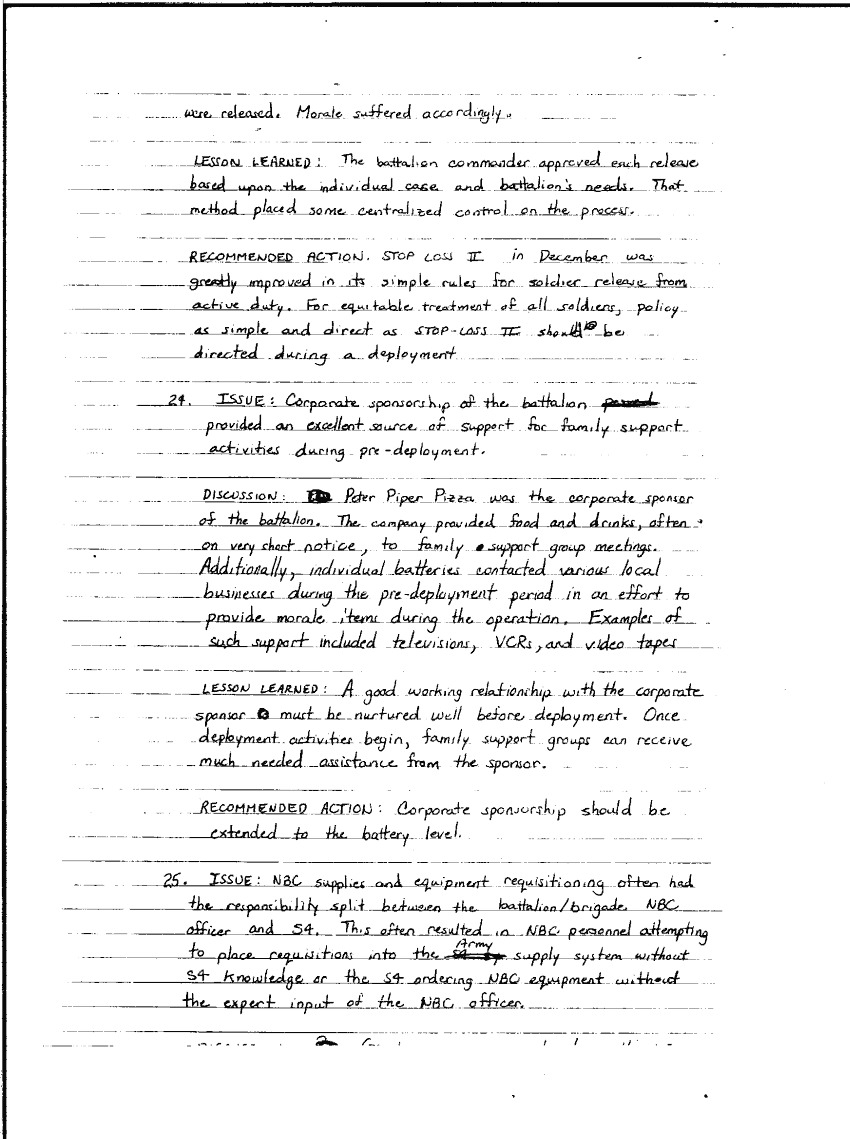 were released. Morale suffered accordingly.
LESSON LEARNED: The battalion commander approved each release
based upon the individual case and battalion's needs. That
method placed some centralized control on the process.
RECOMMENDED ACTION. STOP LOSS II in December was
greatly improved in its simple rules for soldier release from
active duty. For equitable treatment of all soldiers, policy
as simple and direct as STOP-LOSS II should be
directed during a deployment
24. ISSUE: Corporate sponsorship of the battalion
provided an excellent source of support for family support
activities during pre-deployment.
DISCUSSION: Peter Piper Pizza was the corporate sponsor
of the battalion. The company provided food and drinks, often
on very short notice, to family support group meetings.
Additionally, individual batteries contacted various local
businesses during the pre-deployment period in an effort to
provide morale items during the operation. Examples of
such support included televisions, VCRs, and video tapes
LESSON LEARNED: A good working relationship with the corporate
sponsor must be nurtured well before deployment. Once
deployment activities begin, family support groups can receive
much needed assistance from the sponsor.
RECOMMENDED ACTION: Corporate sponsorship should be
extended to the battery level.
25. ISSUE: NBC supplies and equipment requisitioning often had
the responsibility split between the battalion/brigade NBC
officer and S4. This often resulted in NBC personnel attempting
to place requisitions into the Army supply system without
S4 knowledge or the S4 ordering NBC equipment without
the expert input of the NBC officer.